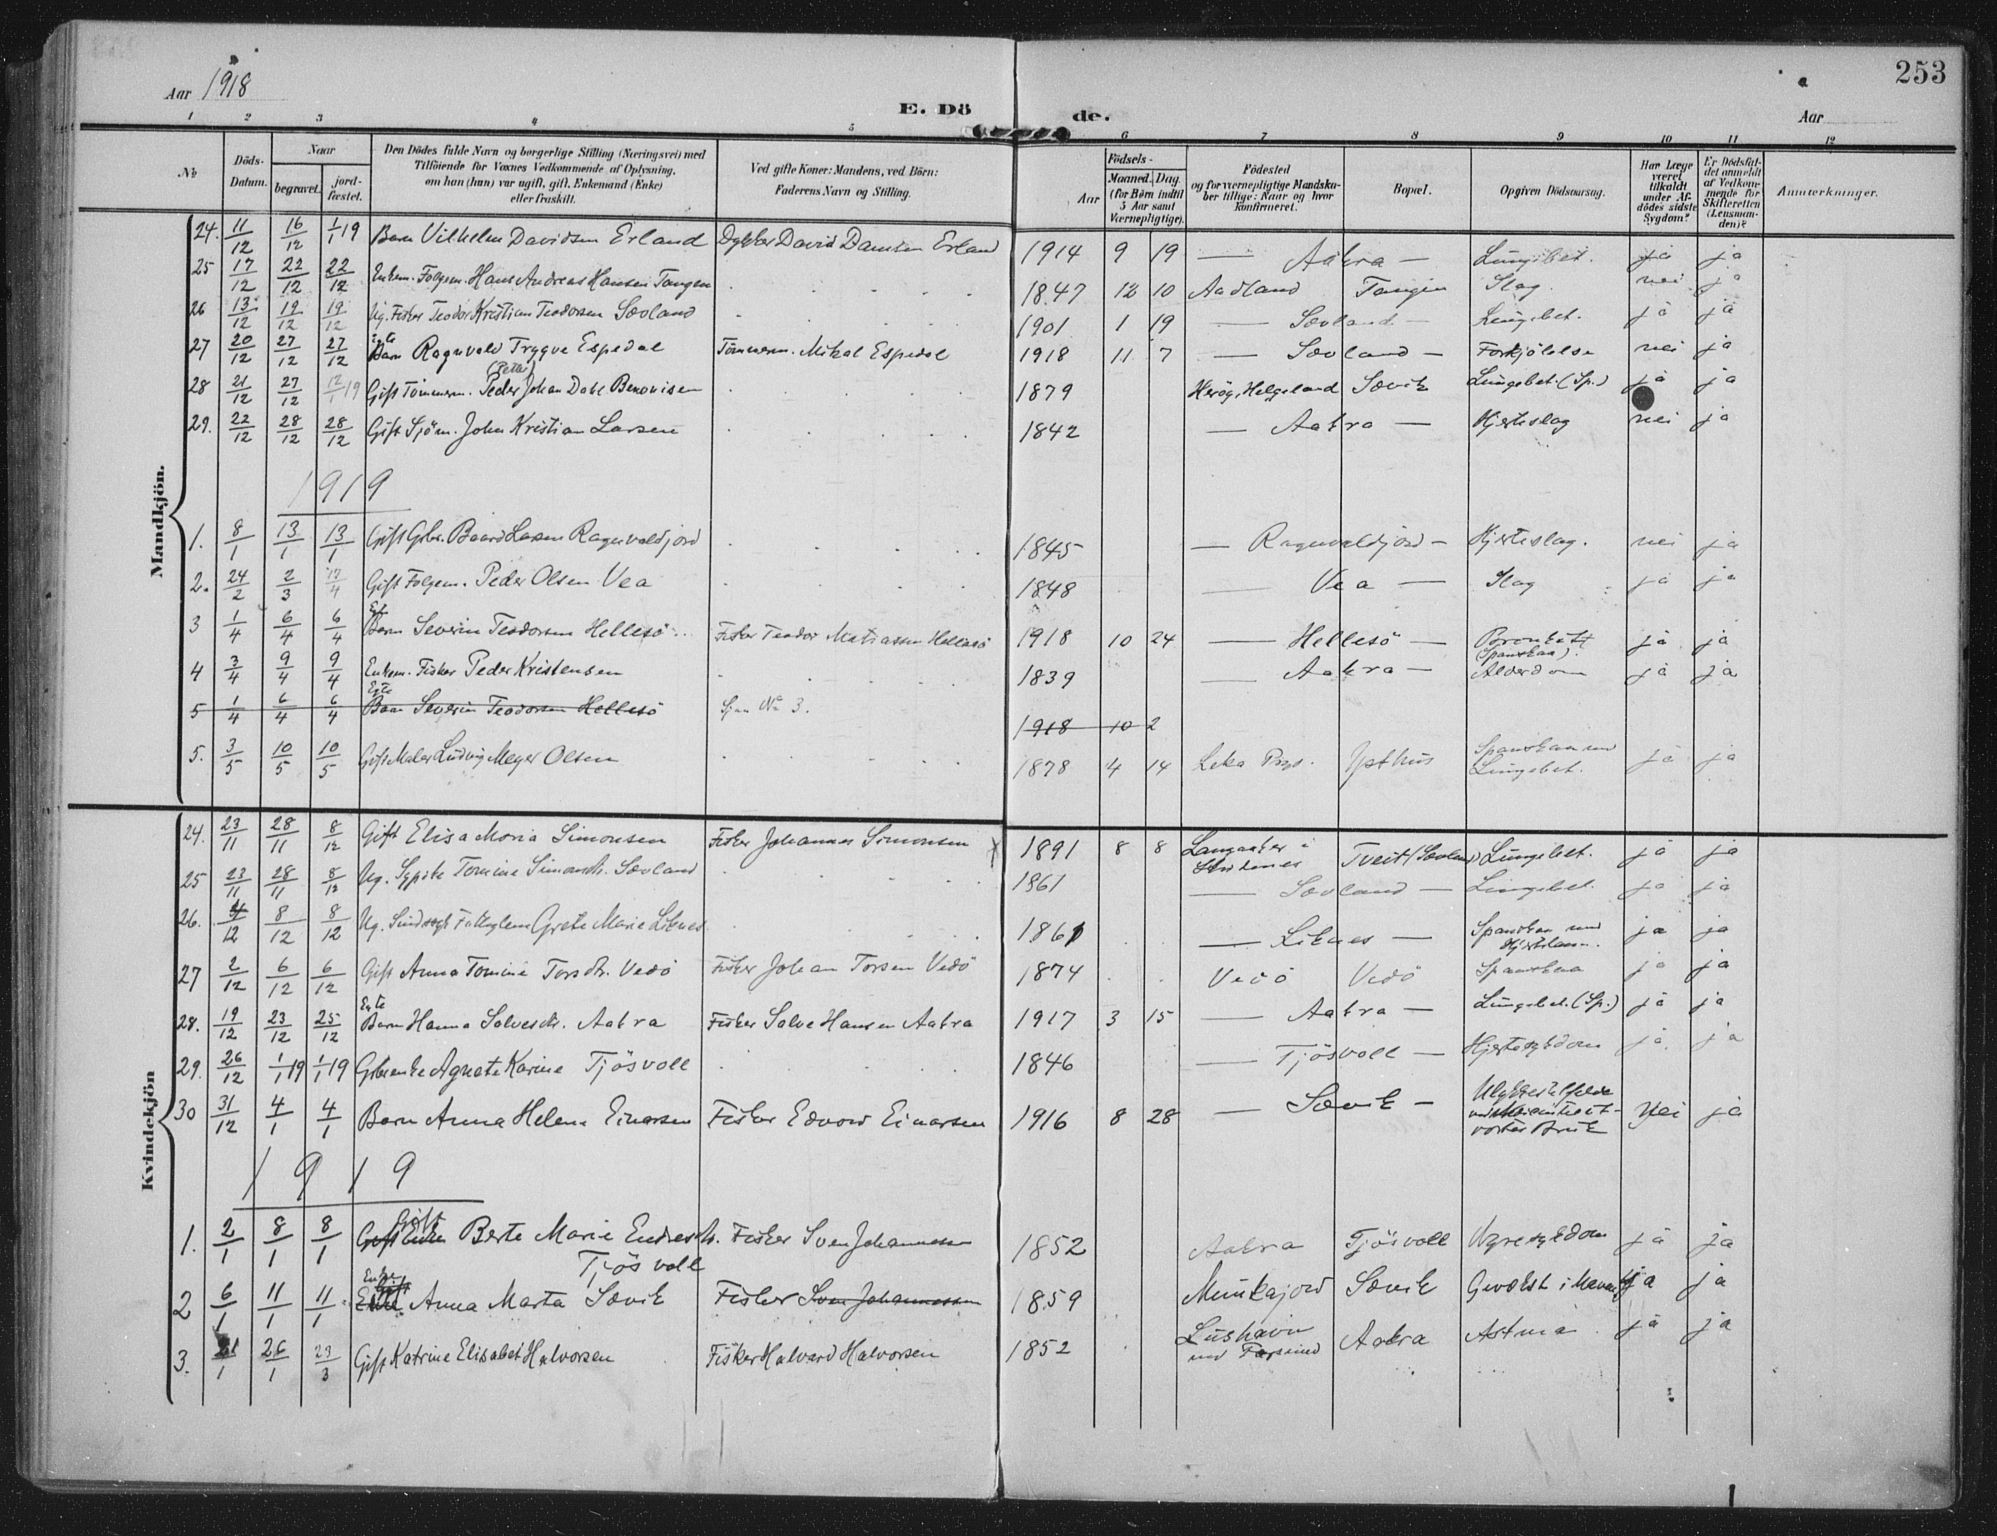 253
Aar 1918
E. Döde.
Aar
1 2 3 4 5 6 7 8 9 10 11 12
No
Döds-Datum.
Naar
begravet.
jord-fæstet.
Den Dödes fulde Navn og borgerlige Stilling (Næringsvei) med Tilföiende for Voxnes Vedkommende af Oplysning, om han (hun) var ugift, gift, Enkemand (Enke) eller fraskilt.
Ved gifte Koner: Mandens, ved Börn: Faderens Navn og Stilling.
Födsels-
Aar
Maaned. Dag.
(for Börn indtil 5 Aar samt Værnepligtige).
Födested og for værnepligtige Mandskaber tillige: Naar og hvor konfirmeret.
Bopæl.
Opgiven Dödsaarsag.
Har Læge været tilkaldt under Afdödes sidste Sygdom?
Er Dödsfaldet anmeldt af Vedkommende for Skifteretten (Lensmanden)?
Anmærkninger.
Mandkjön.
24. 11/12 16/12 1/1 19 Barn Vilhelm Davidsen Erland Dykker David Damsen Erland 1914 9 19 — Aakra — Lungebet. ja ja
25 17/12 22/12 22/12 Enkem. Folgem. Hans Andreas Hansen Tangen 1847 12 10 Aadland Tangen Slag. nei ja
26 13/12 19/12 19/12 Ug. Fisker Teodor Kristian Teodorsen Sævland 1901 1 19 — Sævland — Lungebet. ja ja
27 20/12 27/12 27/12 Egte Barn Ragnvald Trygve Espedal Tömmerm. Mikal Espedal 1918 11 7 — Sævland — Forkjölelse nei ja
28 21/12 27/12 12/1 19 Gift Tömmerm. Peder (Petter) Johan Dahl Benonisen 1879 Heröy, Helgeland Sævik Lungebet. (Sp.) ja ja
29. 22/12 28/12 28/12 Gift Sjöm. John Kristian Larsen 1842 — Aakra — Hjerteslag nei ja
1919
1. 8/1 13/1 13/1 Gift Gbr. Baard Larsen Ragnvaldjord 1845 — Ragnvaldjord — Hjerteslag. nei ja
2. 24/2 2/3 12/4 Gift Folgem. Peder Olsen Vea 1848 — Vea — Slag ja ja
3 1/4 6/4 6/4 Egte Barn Severin Teodorsen Hellesö Fisker Teodor Matiassen Hellesö 1918 10 24 — Hellesö — Bronkitt (Spanskaa). ja ja
4 3/4 9/4 9/4 Enkem. Fisker Peder Kristensen 1839 — Aakra — Alderdom ja ja
5 1/4 6/4 6/4 Egte Barn Severin Teodorsen Hellesö Sjaa No 3. 1918 10 2
5. 3/5 10/5 10/5 Gift Maler Ludvig Meyer Olsen 1878 4 14 Leka Prgs. Spanskaa med Lungebet. ja ja
Kvindekjön
24. 23/11 28/11 8/12 Gift Elisa Maria Simonsen Fisker Johannes Simonsen 1891 8 8 Langaaker i Tveit (Sævland) Lungebet. ja ja
25 23/11 28/11 8/12 Ug. Sypike Tomine Simonsdt. Sævland 1861 — Sævland — Lungebet. ja ja
26. 4/12 8/12 8/12 Ug. Sindssygt Fattiglem Grete Marie Liknes 1861 — Liknes — Spanskaa med Hjertelam. ja ja
27 2/12 6/12 6/12 Gift Anna Tomine Torsdt. Vedö Fisker Johan Torsen Vedö 1874 Vedö Vedö Spanskaa ja ja
28. 19/12 23/12 25/12 Egte Barn Hanna Salvesdt. Aakra Fisker Salve Hansen Aakra 1917 3 15 — Aakra — Lungebet. (Sp.) ja ja
29. 26/12 1/1 19 1/1 19 Gbr. enke Agnete Karine Tjösvoll 1846 — Tjösvoll — Hjertesykdom ja ja
30 31/12 4/1 4/1 Barn Anna Helene Einarsen Fisker Edvard Einarsen 1916 8 28 — Sævik — Ulykkestilfelde nei ja
1919
1. 2/1 8/1 8/1 Gift Enke Gift Berte Marie Endresdt. Tjösvoll Fisker Sven Johannessen 1852 Aakra Tjösvoll Nyresykdom ja ja
2 6/1 11/1 11/1 Enke Anna Marta Sævik Fisker Sven Johannessen 1859 Munkajord Sævik Gvækst i Maven ja ja
3. 21/1 26/1 23/3 Gift Katrine Elisabet Halvorsen Fisker Halvard Halvorsen 1852 Lushavn ved Farsund Aakra Astma. ja ja